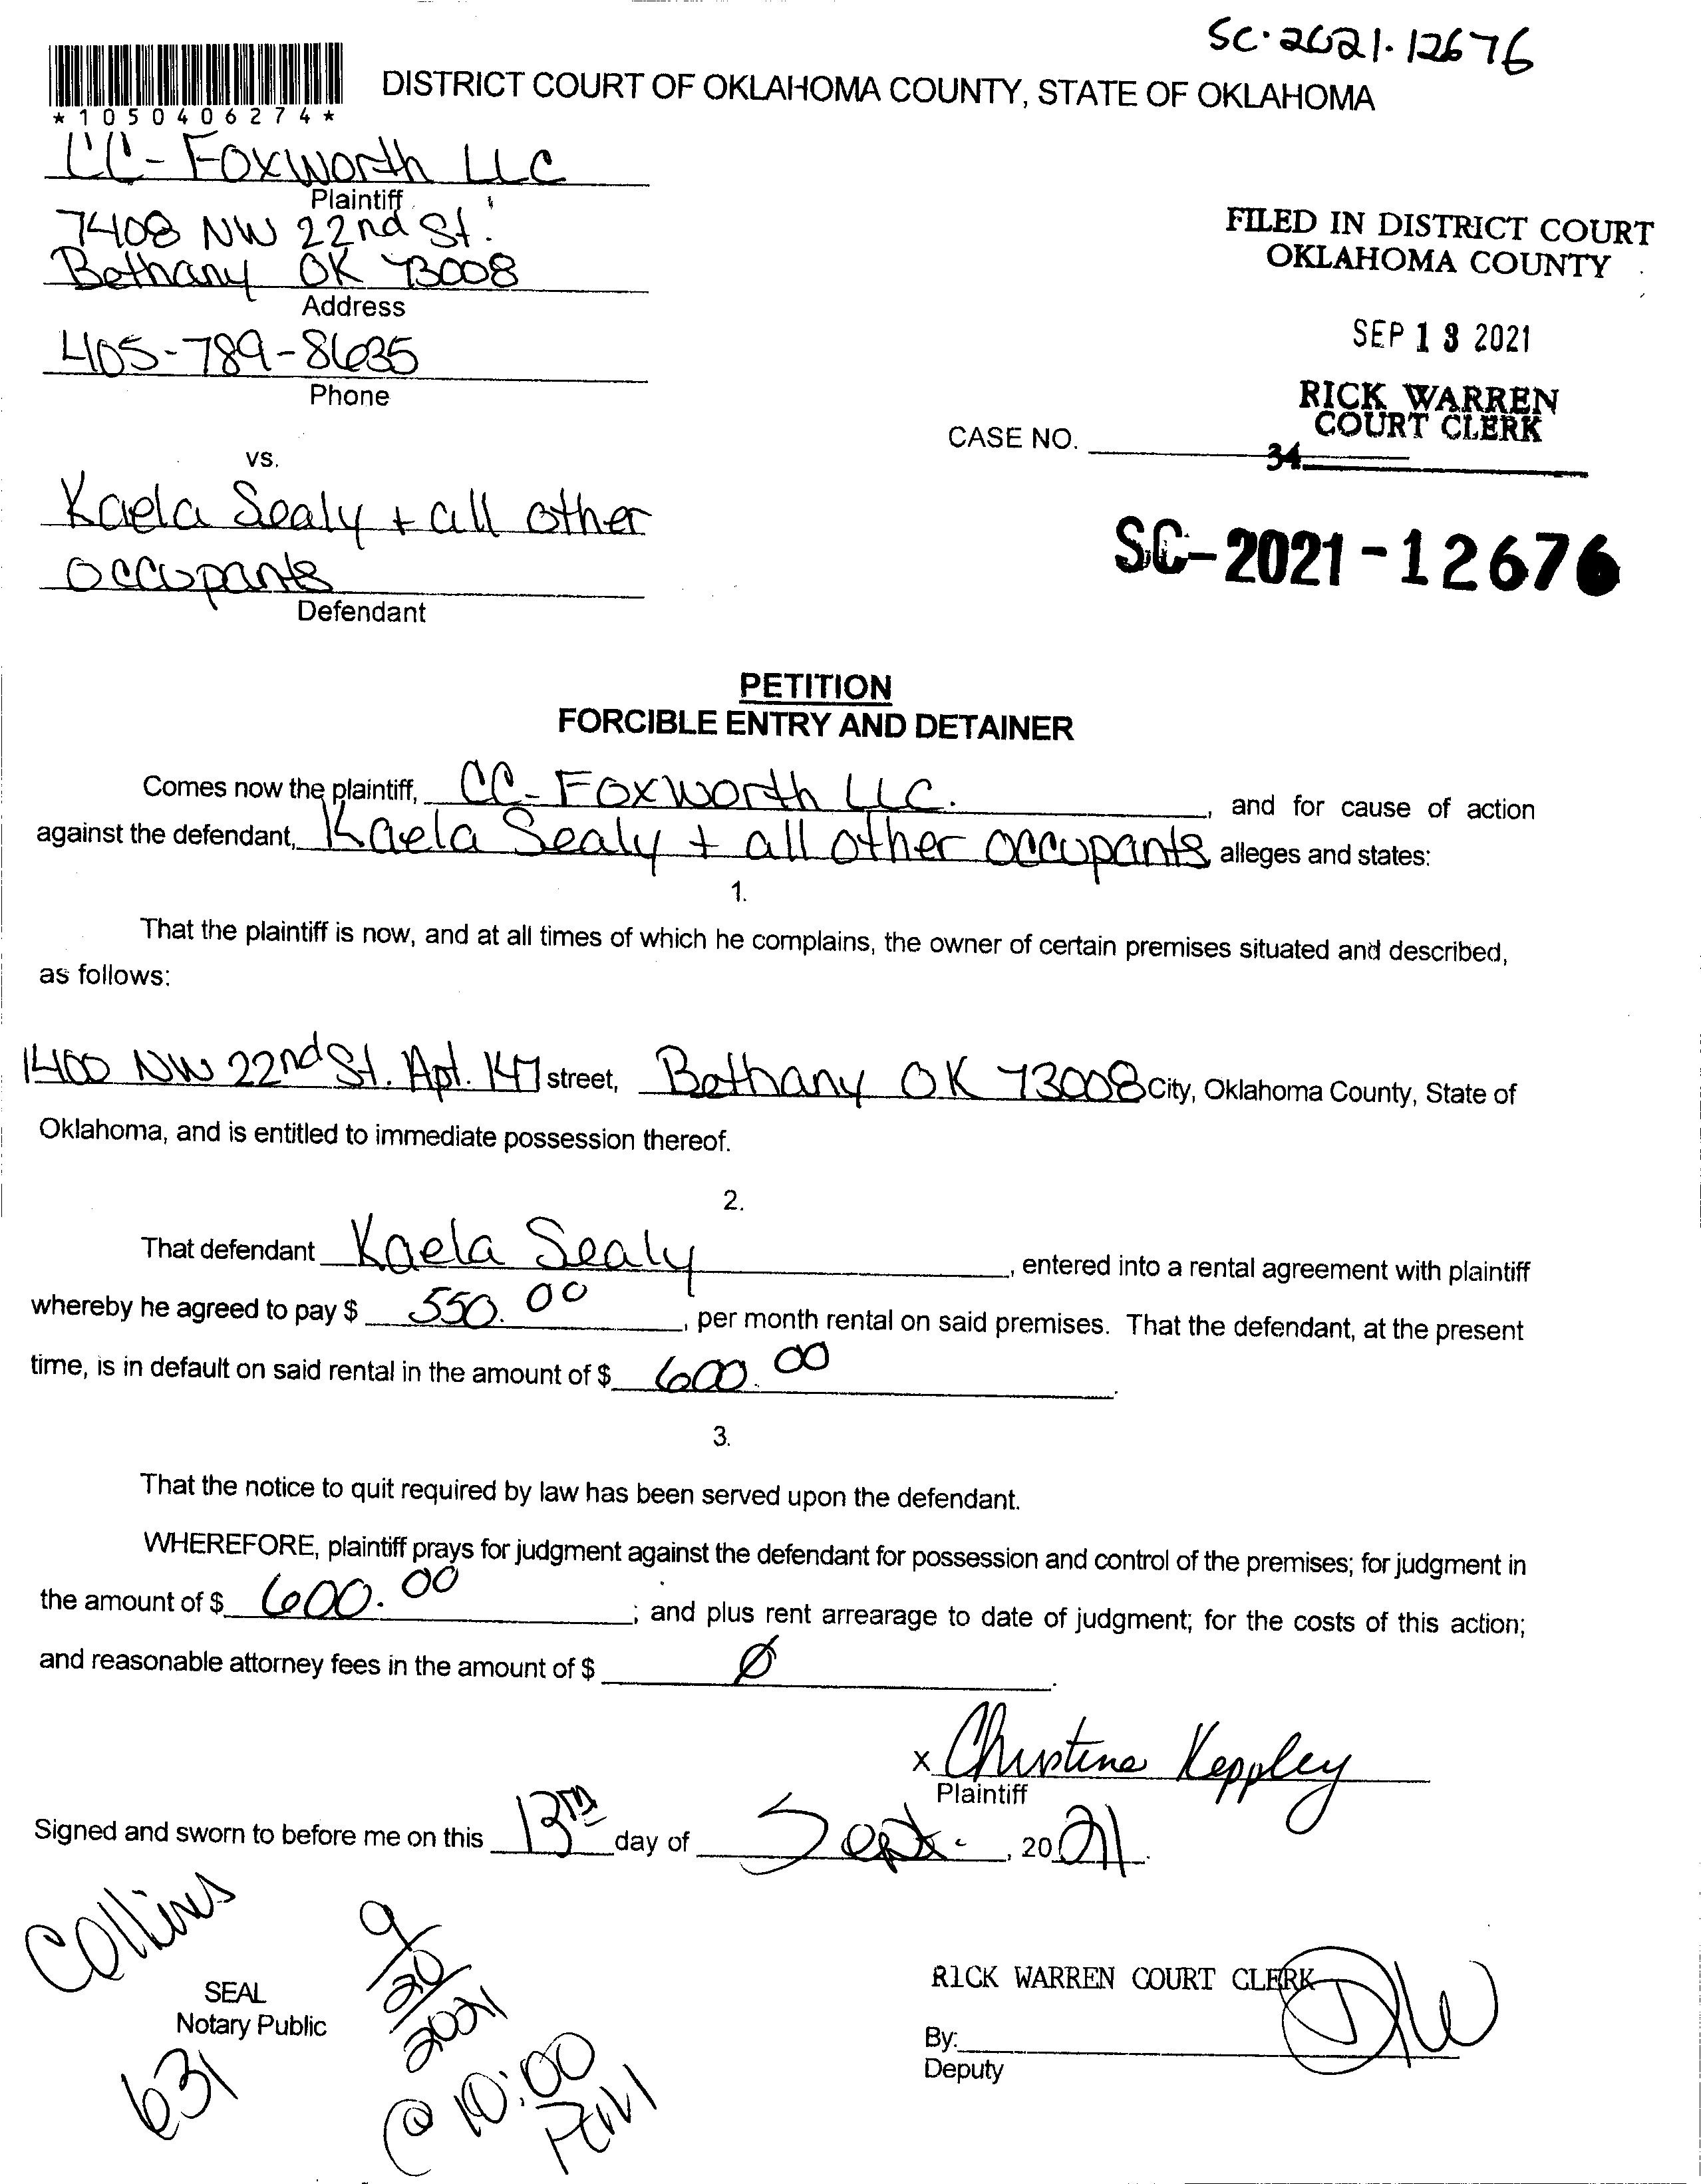 SC-2021-12676
*1050406274*
DISTRICT COURT OF OKLAHOMA COUNTY, STATE OF OKLAHOMA
CC-Foxworth LLC
Plaintiff
7408 NW 22nd St.
Bethany OK 73008
Address
405-789-8635
Phone
FILED IN DISTRICT COURT
OKLAHOMA COUNTY
SEP 13 2021
RICK WARREN
COURT CLERK
CASE NO.
34
vs.
Kaela Sealy + all other
occupants
Defendant
SC-2021-12676
PETITION
FORCIBLE ENTRY AND DETAINER
Comes now the plaintiff, CC-Foxworth LLC. , and for cause of action
against the defendant, Kaela Sealy + all other occupants alleges and states:
1.
That the plaintiff is now, and at all times of which he complains, the owner of certain premises situated and described,
as follows:
7400 NW 22nd St. Apt. 147 street, Bethany OK 73008 City, Oklahoma County, State of
Oklahoma, and is entitled to immediate possession thereof.
2.
That defendant Kaela Sealy , entered into a rental agreement with plaintiff
whereby he agreed to pay $ 550.00 , per month rental on said premises. That the defendant, at the present
time, is in default on said rental in the amount of $ 600.00 .
3.
That the notice to quit required by law has been served upon the defendant.
WHEREFORE, plaintiff prays for judgment against the defendant for possession and control of the premises; for judgment in
the amount of $ 600.00 ; and plus rent arrearage to date of judgment; for the costs of this action;
and reasonable attorney fees in the amount of $ Ø .
x Christine Keppley
Plaintiff
Signed and sworn to before me on this 13th day of Sept. , 2021.
Collins
SEAL
Notary Public
631
9/20/2021
@ 10:00
AM
RICK WARREN COURT CLERK
By:
Deputy